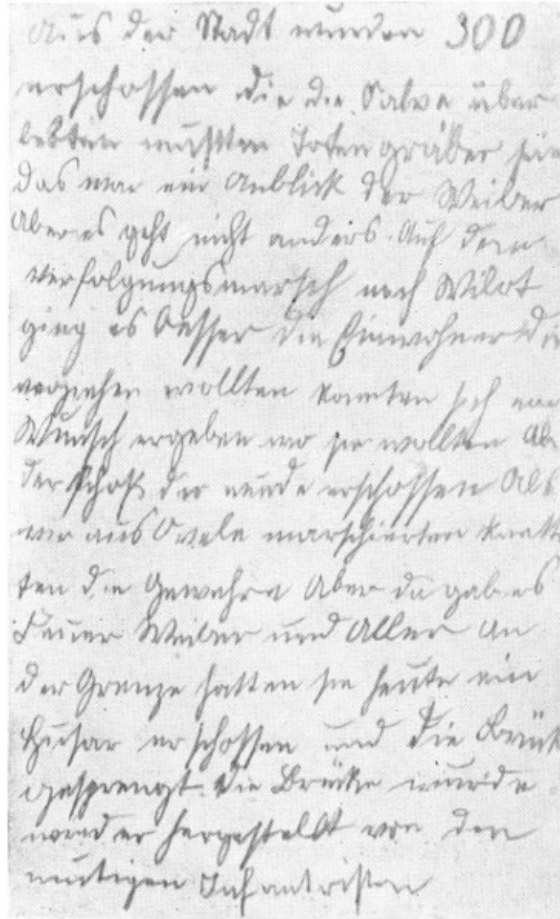 Aus der Stadt wurden 300
erschossen die die Salve über
lebten mußten Totengräber sein
das war ein Anblick der Weiber
Aber es geht nicht anders. Auf dem
Verfolgungsmarsch nach Wilot
ging es besser die Einwohner die
verziehen wollten konnten sich nach
Wunsch ergeben wo sie wollten Ab
der schoß der wurde erschossen Als
wir aus Owele marschierten knatt
ten die Gewehre Aber da gab es
Feuer Weiber und Alles An
der Grenze hatten sie heute ein
Husar erschossen und die Brück
gesprengt. Die Brücke wurde
wieder hergestellt von den
mutigen Infantristen